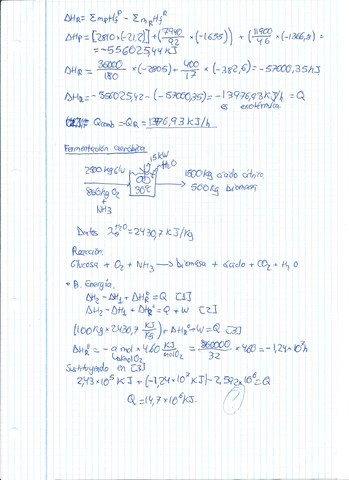 ΔHR = Σ mp Hf^P - Σ mR Hf^R
ΔHP = [2810 × (-21,2)] + (7940/92 × (-1655)) + (11900/46 × (-1366,8)) =
= -556025,44 KJ
ΔHR = 36000/180 × (-2805) + 400/17 × (-382,6) = -57000,35 KJ
ΔHR = -556025,42 - (-57000,35) = -13976,93 KJ/h = Q
es exotérmica
Qcomb = QR = 13976,93 KJ/h
Fermentación aeróbica
15KW
H2O
2500 kg glu
1500 kg ácido cítrico
500 kg biomasa
860 kg O2
+
NH3
30º
Datos λ H2O = 2430,7 KJ/Kg
Reacción
Glucosa + O2 + NH3 → biomasa + ácido + CO2 + H2O
* B. Energía.
ΔH2 - ΔH1 + ΔHRº = Q [1]
ΔH2 - ΔH1 + ΔHRº = Q + W [2]
(100 Kg × 2430,7 KJ/Kg) + ΔHRº - W = Q [3]
ΔHRº = -a mol × 460 KJ/molO2 = 860000/32 × 460 = -1,24×10⁷
Sustituyendo en [3]
2,43×10⁵ KJ + (-1,24×10⁷ KJ) - 2,592×10⁶ = Q
Q = 14,7×10⁶ KJ.